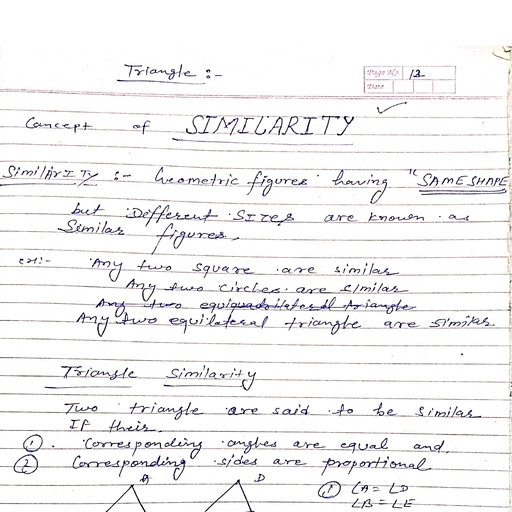 Triangle :-
Page No. 12
Date
Concept of SIMILARITY
SIMILARITY :- Geometric figures having "SAME SHAPE
but Different SIZES are known as
Similar figures.
ex:- Any two square are similar
Any two circles are similar
Any two equiquadrilateral triangle
Any two equilateral triangle are similar.
Triangle Similarity
Two triangle are said to be similar
If their.
① Corresponding angles are equal and,
② Corresponding sides are proportional
A D ① ∠A = ∠D
∠B = ∠E